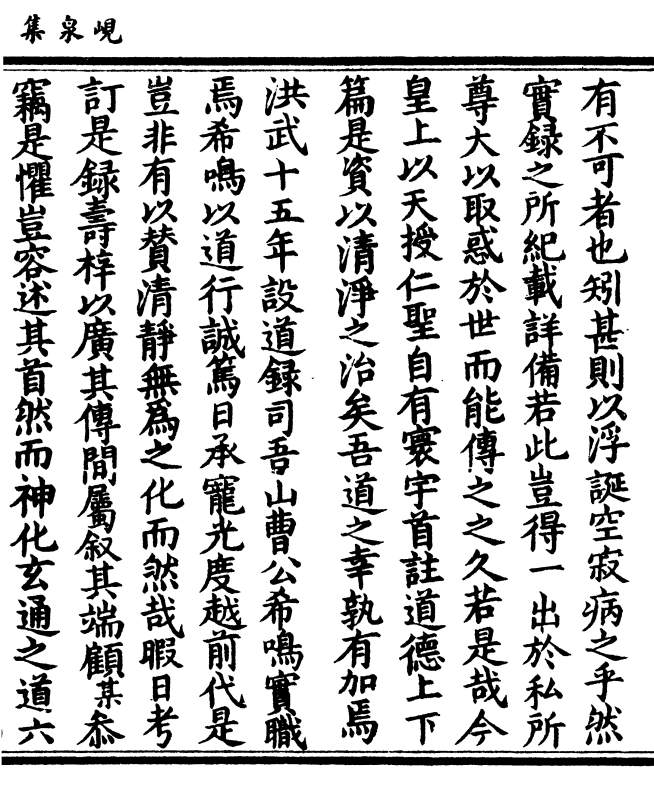 峴泉集
有不可者也矧甚則以浮誕空寂病之乎然
實録之所紀載詳備若此豈得一出於私所
尊大以取惑於世而能傳之之久若是哉今
皇上以天授仁聖自有寰宇首註道德上下
篇是資以清淨之治矣吾道之幸孰有加焉
洪武十五年設道録司吾山曹公希鳴實職
焉希鳴以道行誠篤日承寵光度越前代是
豈非有以賛清靜無爲之化而然哉暇日考
訂是録壽梓以廣其傳間屬叙其端顧某忝
竊是懼豈容述其首然而神化玄通之道六